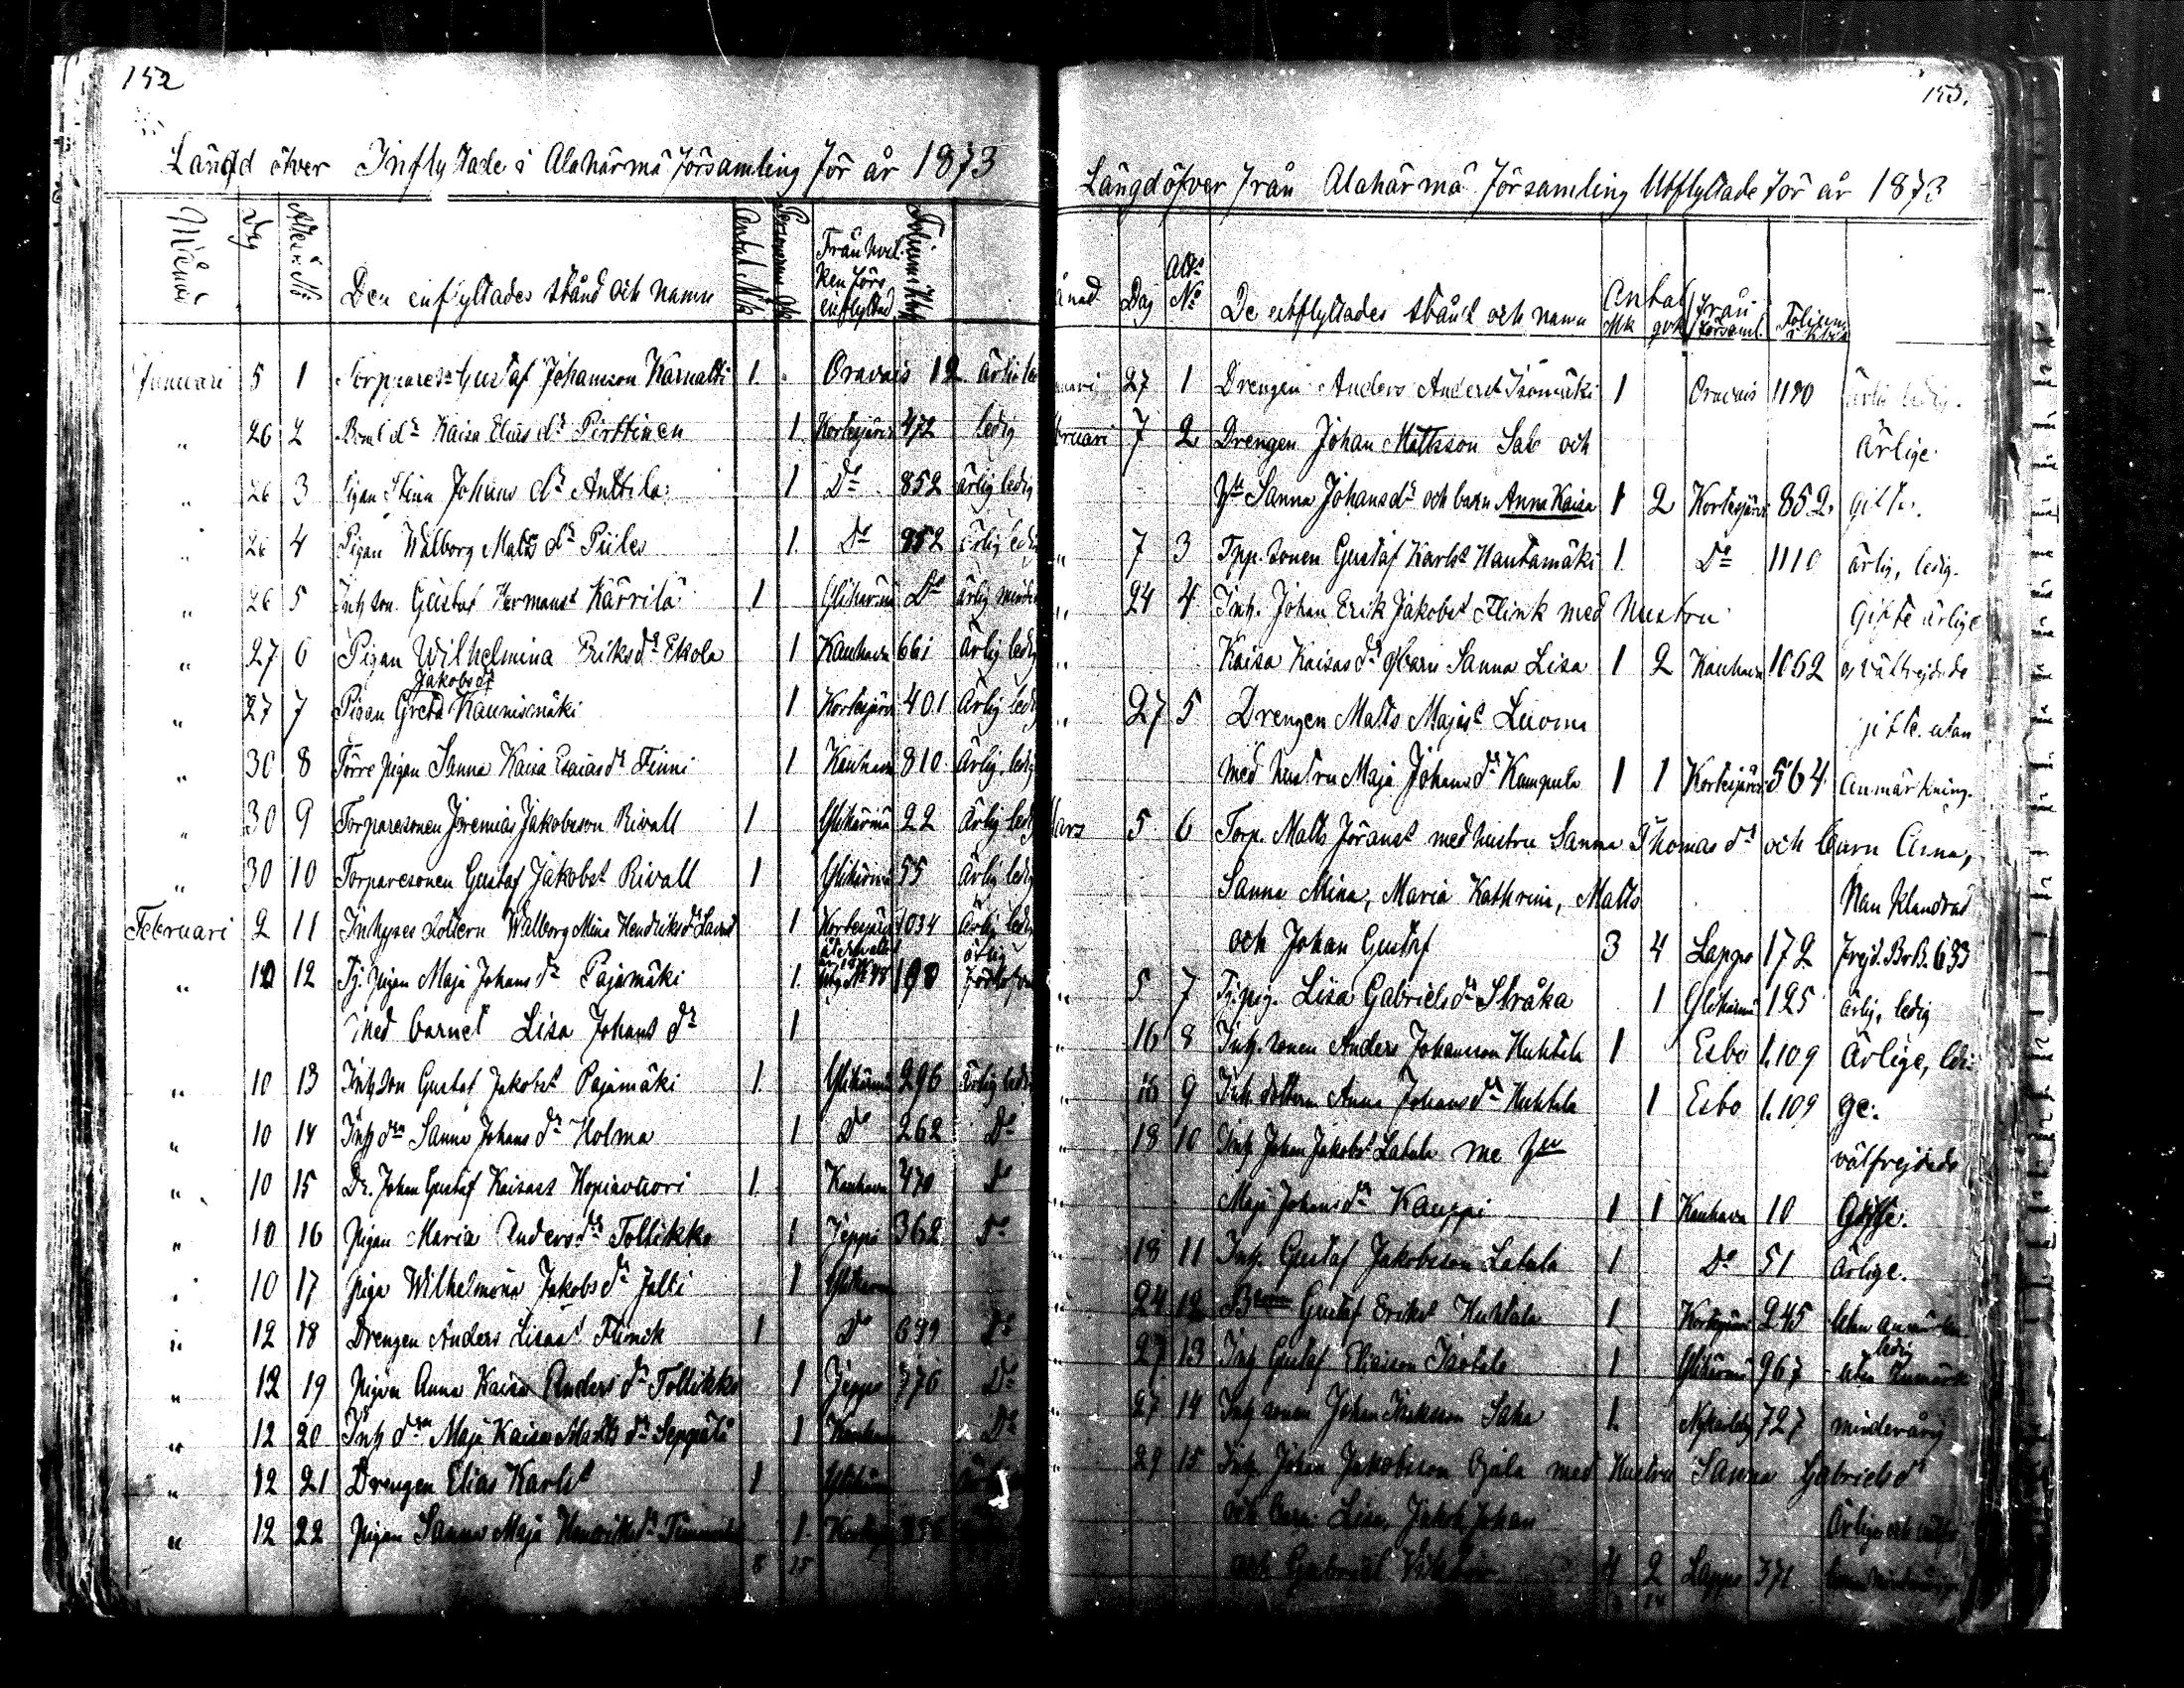 152
Längd öfver Inflyttade i Alahärmä församling för år 1873
Månad Dag Attest No Den inflyttades stånd och namn Antal Mk Personer Qk Från hvilken förs. inflyttad Folium i Kbk
Januari 5 1 Torpareson Gustaf Johansson Karnatti 1. Oravais 12 ärlig
" 26 2 Bond dr Kaisa Elias dr Pirttinen 1 Kortesjärvi 472 ledig
" 26 3 Pigan Stina Johans dr Anttila 1 Do 852 ärlig ledig
" 26 4 Pigan Walborg Matts dr Piiles 1. Do 852 ärlig ledig
" 26 5 Inh son Gustaf Hermanst Kärrilä 1 Ylihärmä Do ärlig
" 27 6 Pigan Wilhelmina Eriks dr Ekola 1 Kauhava 661 Ärlig ledig
" 27 7 Pigan Greta Jakobs dr Kaunismäki 1 Kortesjärvi 401 Ärlig ledig
" 30 8 Förre pigan Sanna Kaisa Esaias dr Finni 1 Kauhava 810 Ärlig, ledig
" 30 9 Torparesonen Jeremias Jakobsson Rivall 1 Ylihärmä 22 Ärlig ledig
" 30 10 Torparesonen Gustaf Jakobst Rivall 1 Ylihärmä 55 Ärlig ledig
Februari 2 11 Inhyses dottern Walborg Mina Hendriks dr 1 Kortesjärvi 1034 Ärlig ledig
" 10 12 Tj. pigan Maja Johans dr Pajamäki 1. 190 ärlig
Med barnet Lisa Johans dr 1
" 10 13 Inh. son Gustaf Jakobst Pajamäki 1. Ylihärmä 296 ärlig ledig
" 10 14 Inh drn Sanna Johans dr Holma 1 Do 262 Do
" 10 15 Dr. Johan Gustaf Kaisast Kopiavuori 1. Kauhava 470 Do
" 10 16 Pigan Maria Anders dr Tollikko 1 Jeppo 362 Do
" 10 17 Piga Wilhelmina Jakobs dr Jalti 1 Ylihärmä
" 12 18 Drengen Anders Lisast Flinck 1 Do 699 Do
" 12 19 Pigan Anna Kaisa Anders dr Tollikko 1 Jeppo 776 Do
" 12 20 Inh drn Maja Kaisa Matts dr Seppälä 1 Kauhava Do
" 12 21 Drengen Elias Karlst 1 Ylihärmä
" 12 22 Pigan Sanna Maja Henriks dr 1.
8 15
153.
Längd öfver från Alahärmä församling Utflyttade för år 1873
ånad Dag Atts No De utflyttades stånd och namn Antal Mk qvk från församl. Folium i Kbk
nuari 27 1 Drengen Anders Anderst Isomäki 1 Oravais 1190 ärlig ledig.
bruari 7 2 Drengen Johan Mattsson Salo och Ärlige
Hu Sanna Johansdr och barn Anna Kaisa 1 2 Kortesjärvi 852. gifte.
" 7 3 Tpp. sonen Gustaf Karlst Hautamäki 1. Do 1110 ärlig, ledig.
" 24 4 Inh. Johan Erik Jakobst Flink med Hustru Gifte ärlige
" Kaisa Kaisas dr o barn Sanna Lisa 1 2 Kauhava 1062 o välfrejdade
" 27 5 Drengen Matts Majast Luoma gifte. utan
med hustru Maja Johans dr Kampula 1 1 Kortesjärvi 564 anmärkning.
Mars 5 6 Torp. Matts Jöranst med hustru Sanna Thomas dr och barn Anna,
Sanna Mina, Maria Kathrina, Matts
och Johan Gustaf 3 4 Lappo 172 frejd. BrB. 633
" 5 7 Tj. pig. Lisa Gabriels dr Stråka 1 Ylihärmä 125 ärlig, ledig
" 16 8 Inh. sonen Anders Johansson Huhtala 1 Esbo 1.109 Ärlige, ledi-
" 16 9 Inh. dottern Anna Johans dr Huhtala 1 Esbo 1.109 ge.
" 18 10 Inh Johan Jakobst Latula me Hu välfrejdade
Maja Johans dr Kauppi 1 1 Kauhava 10 Gifte.
" 18 11 Inh. Gustaf Jakobsson Latula 1 Do 51 Ärlige.
" 24 12 Gustaf Erikst Huhtala 1 Kortesjärvi 245 utan anmärkn. ledig
" 27 13 Inh Gustaf Eliasson Isotalo 1 Ylihärmä 967 utan anmärk
" 27 14 Inh sonen Johan Isaksson Saha 1. Nykarleby 727 minderårig
" 29 15 Inh. Johan Jakobsson Ojala med Hustru Sanna Gabriels dr
och barn Lisa, Jakob, Johan Ärlige och
och Gabriel Viktor 4 2 Lappo 371